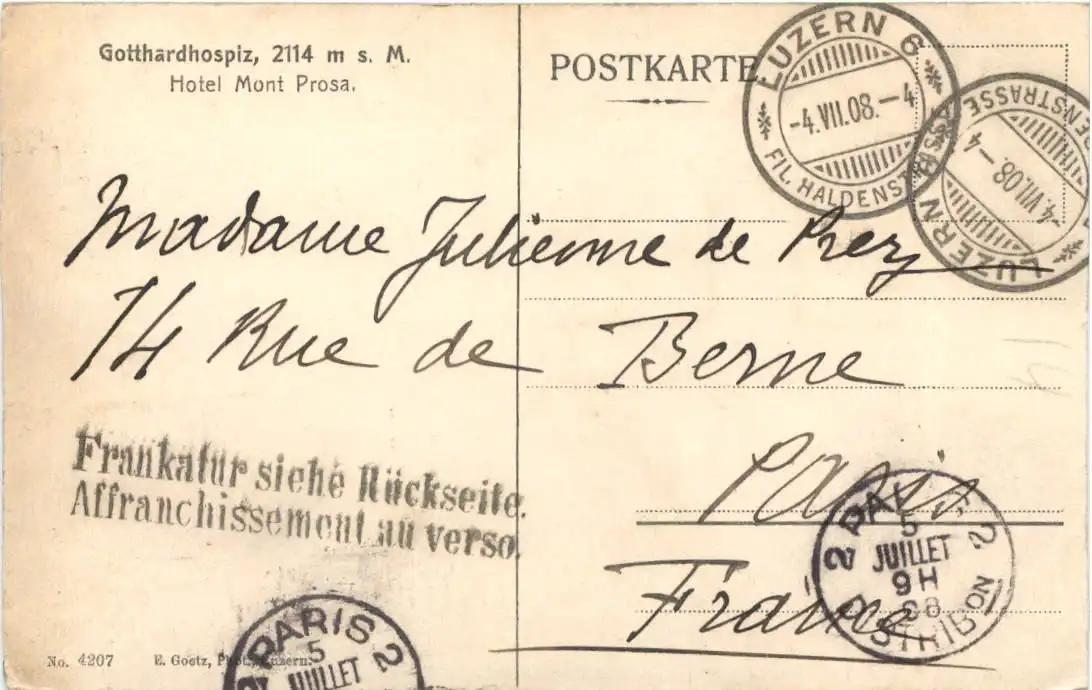 Gotthardhospiz, 2114 m s. M.
Hotel Mont Prosa.
POSTKARTE
LUZERN 6
-4.VII.08.-4
FIL. HALDENST
LUZERN
-4.VII.08.-4
ENSTRASSE
Madame Julienne de Prez
14 Rue de Berne
Paris
France
Frankatur siehe Rückseite.
Affranchissement au verso.
2 PARIS 2
5
JUILLET
9H
08
DISTRIBON
PARIS 2
5
JUILLET
No. 4207 E. Goetz, Phot., Luzern.